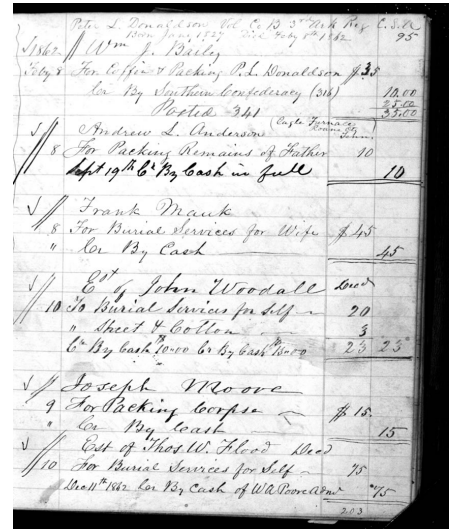 Peter L. Donaldson Vol Co B 3rd Ark Reg C.S.A
Born Jany 1827 Died Feby 8th 1862 95
1862 Wm J. Bailey
Feby 8 For Coffin & Packing P. L. Donaldson $35
Cr By Southern Confederacy (316) 10.00
25.00
Posted 341 35.00
Andrew L. Anderson (Eagle Furnace Roane Co Tenn)
8 For Packing Remains of Father 10
Sept 19th Cr By Cash in full 10
Frank Mauk
8 For Burial Services for Wife $45
" Cr By Cash 45
Est of John Woodall Decd
10 To Burial Services for Self 20
" Sheet & Cotton 3
Cr By Cash 10.00 Cr By Cash 13.00 23 23
Joseph Moore
9 For Packing Corpse $15
" Cr By Cash 15
Est of Thos. W. Flood Decd
10 For Burial Services for Self 75
Dec 11th 1862 Cr By Cash of W A Poore Admr 75
203